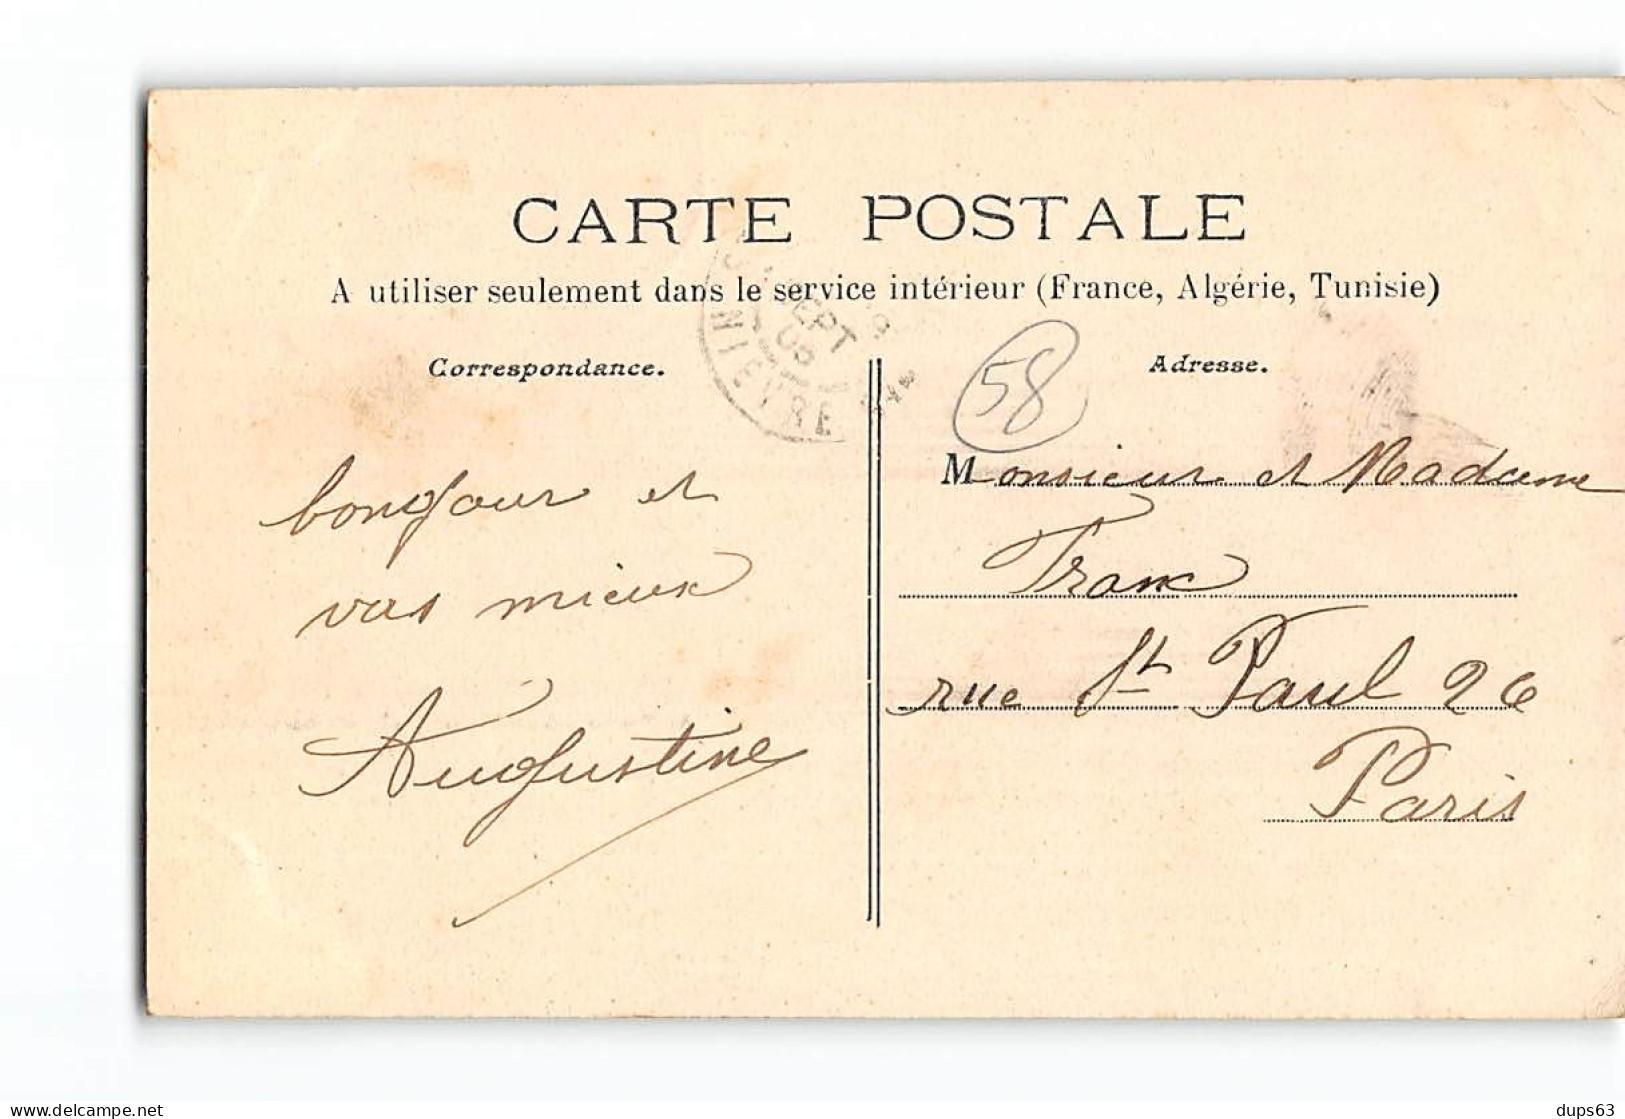 CARTE POSTALE
A utiliser seulement dans le service intérieur (France, Algérie, Tunisie)
SEPT
05
NIEVRE
Correspondance.
Adresse.
58
bonjour et
vas mieux
Augustine
Monsieur et Madame
Franc
rue St Paul 26
Paris
dups63